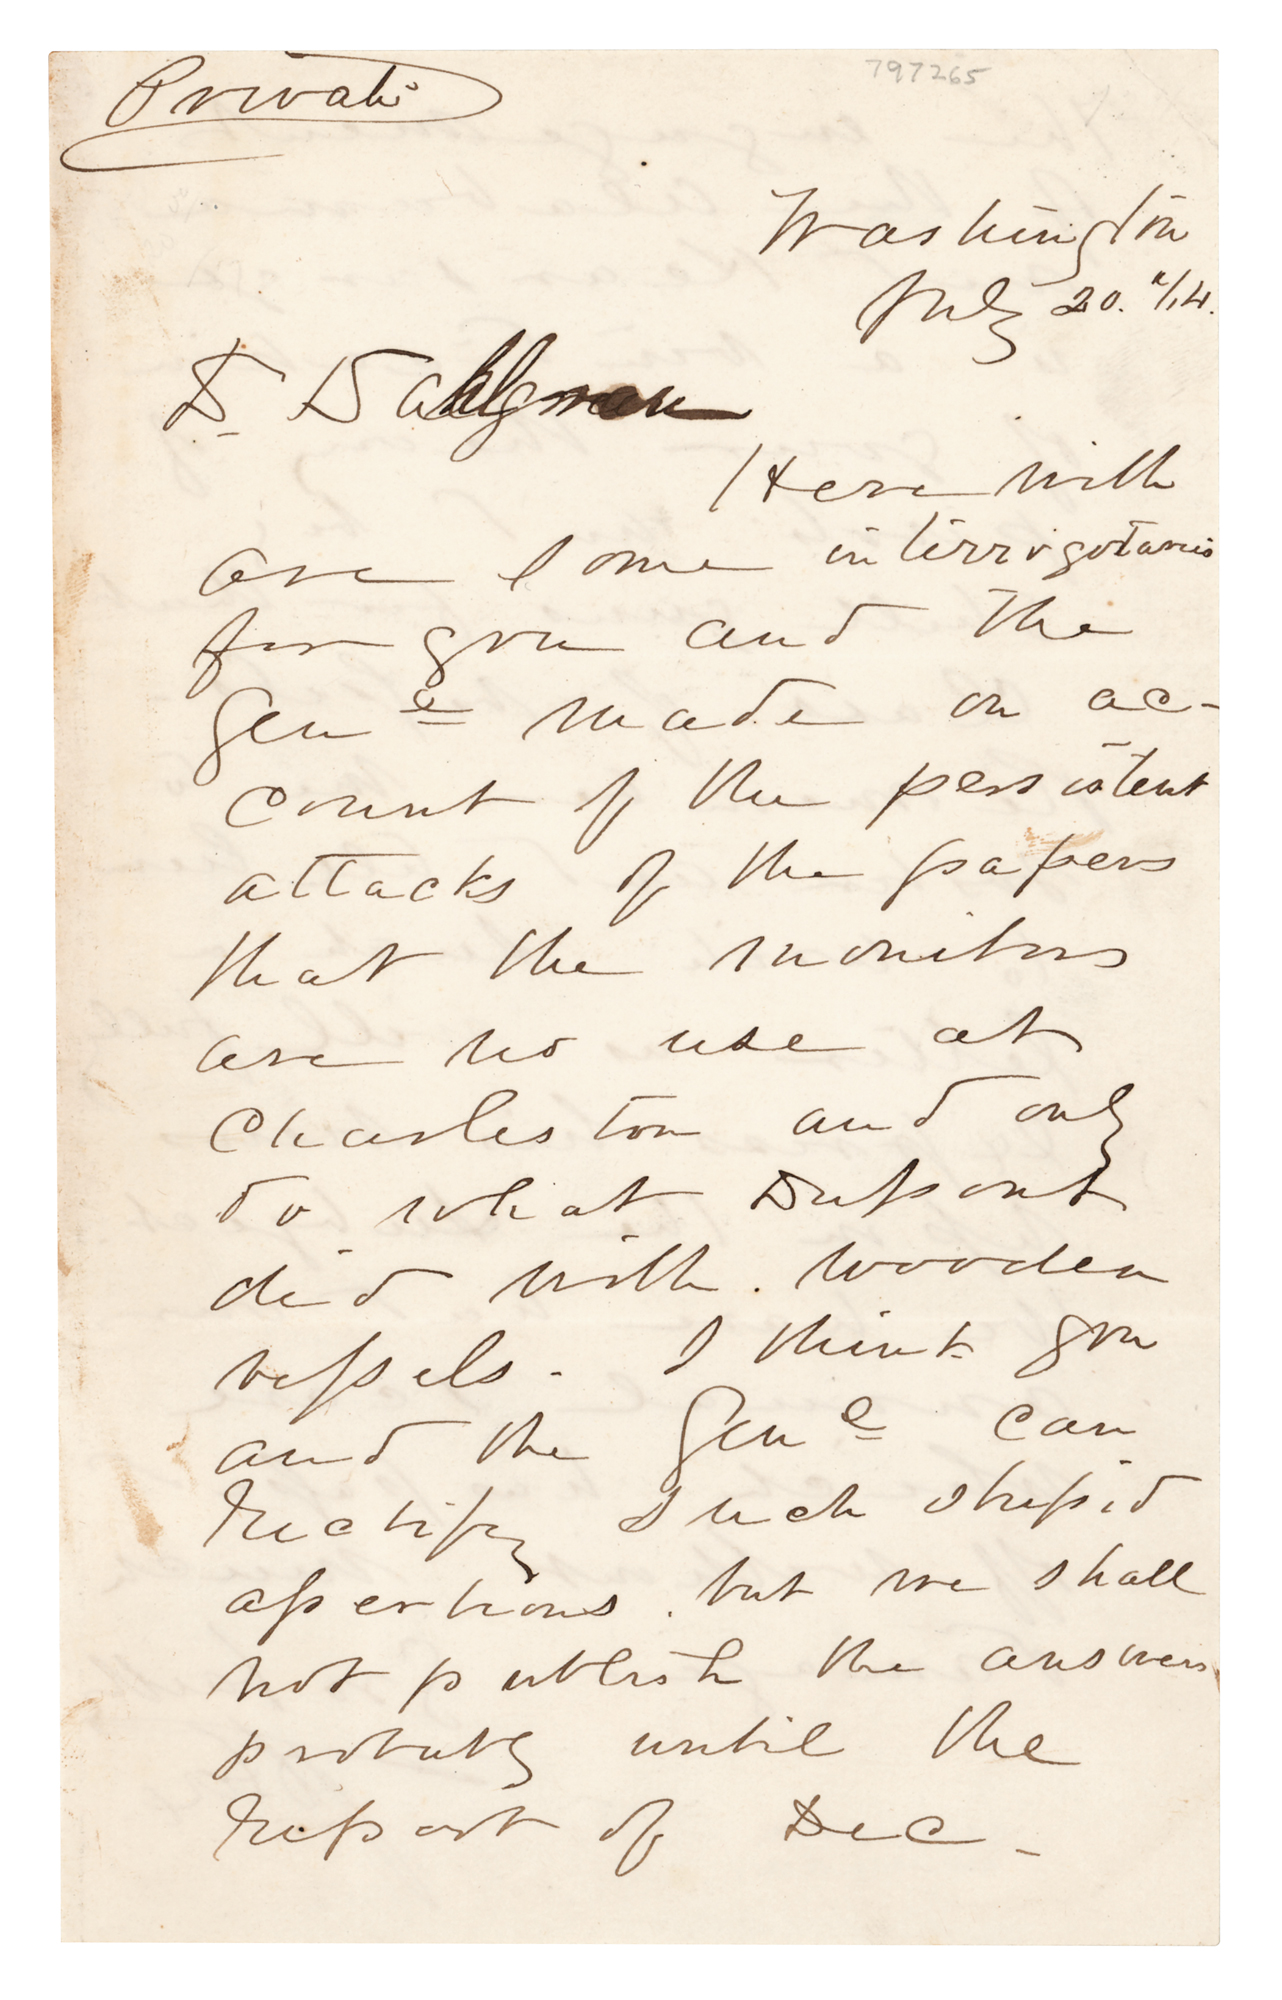 Private
797265
Washington
July 20. "/14.
D. Dahlgren
Herewith
are some interrogotaries
for you and the
Genl made on ac-
count of the persistent
attacks of the papers
that the monitors
are no use at
Charleston and only
do what Dupont
did with. wooden
vessels. I think you
and the Genl can
rectify such stupid
assertions. but we shall
not publish the answers
probably until the
report of Dec.